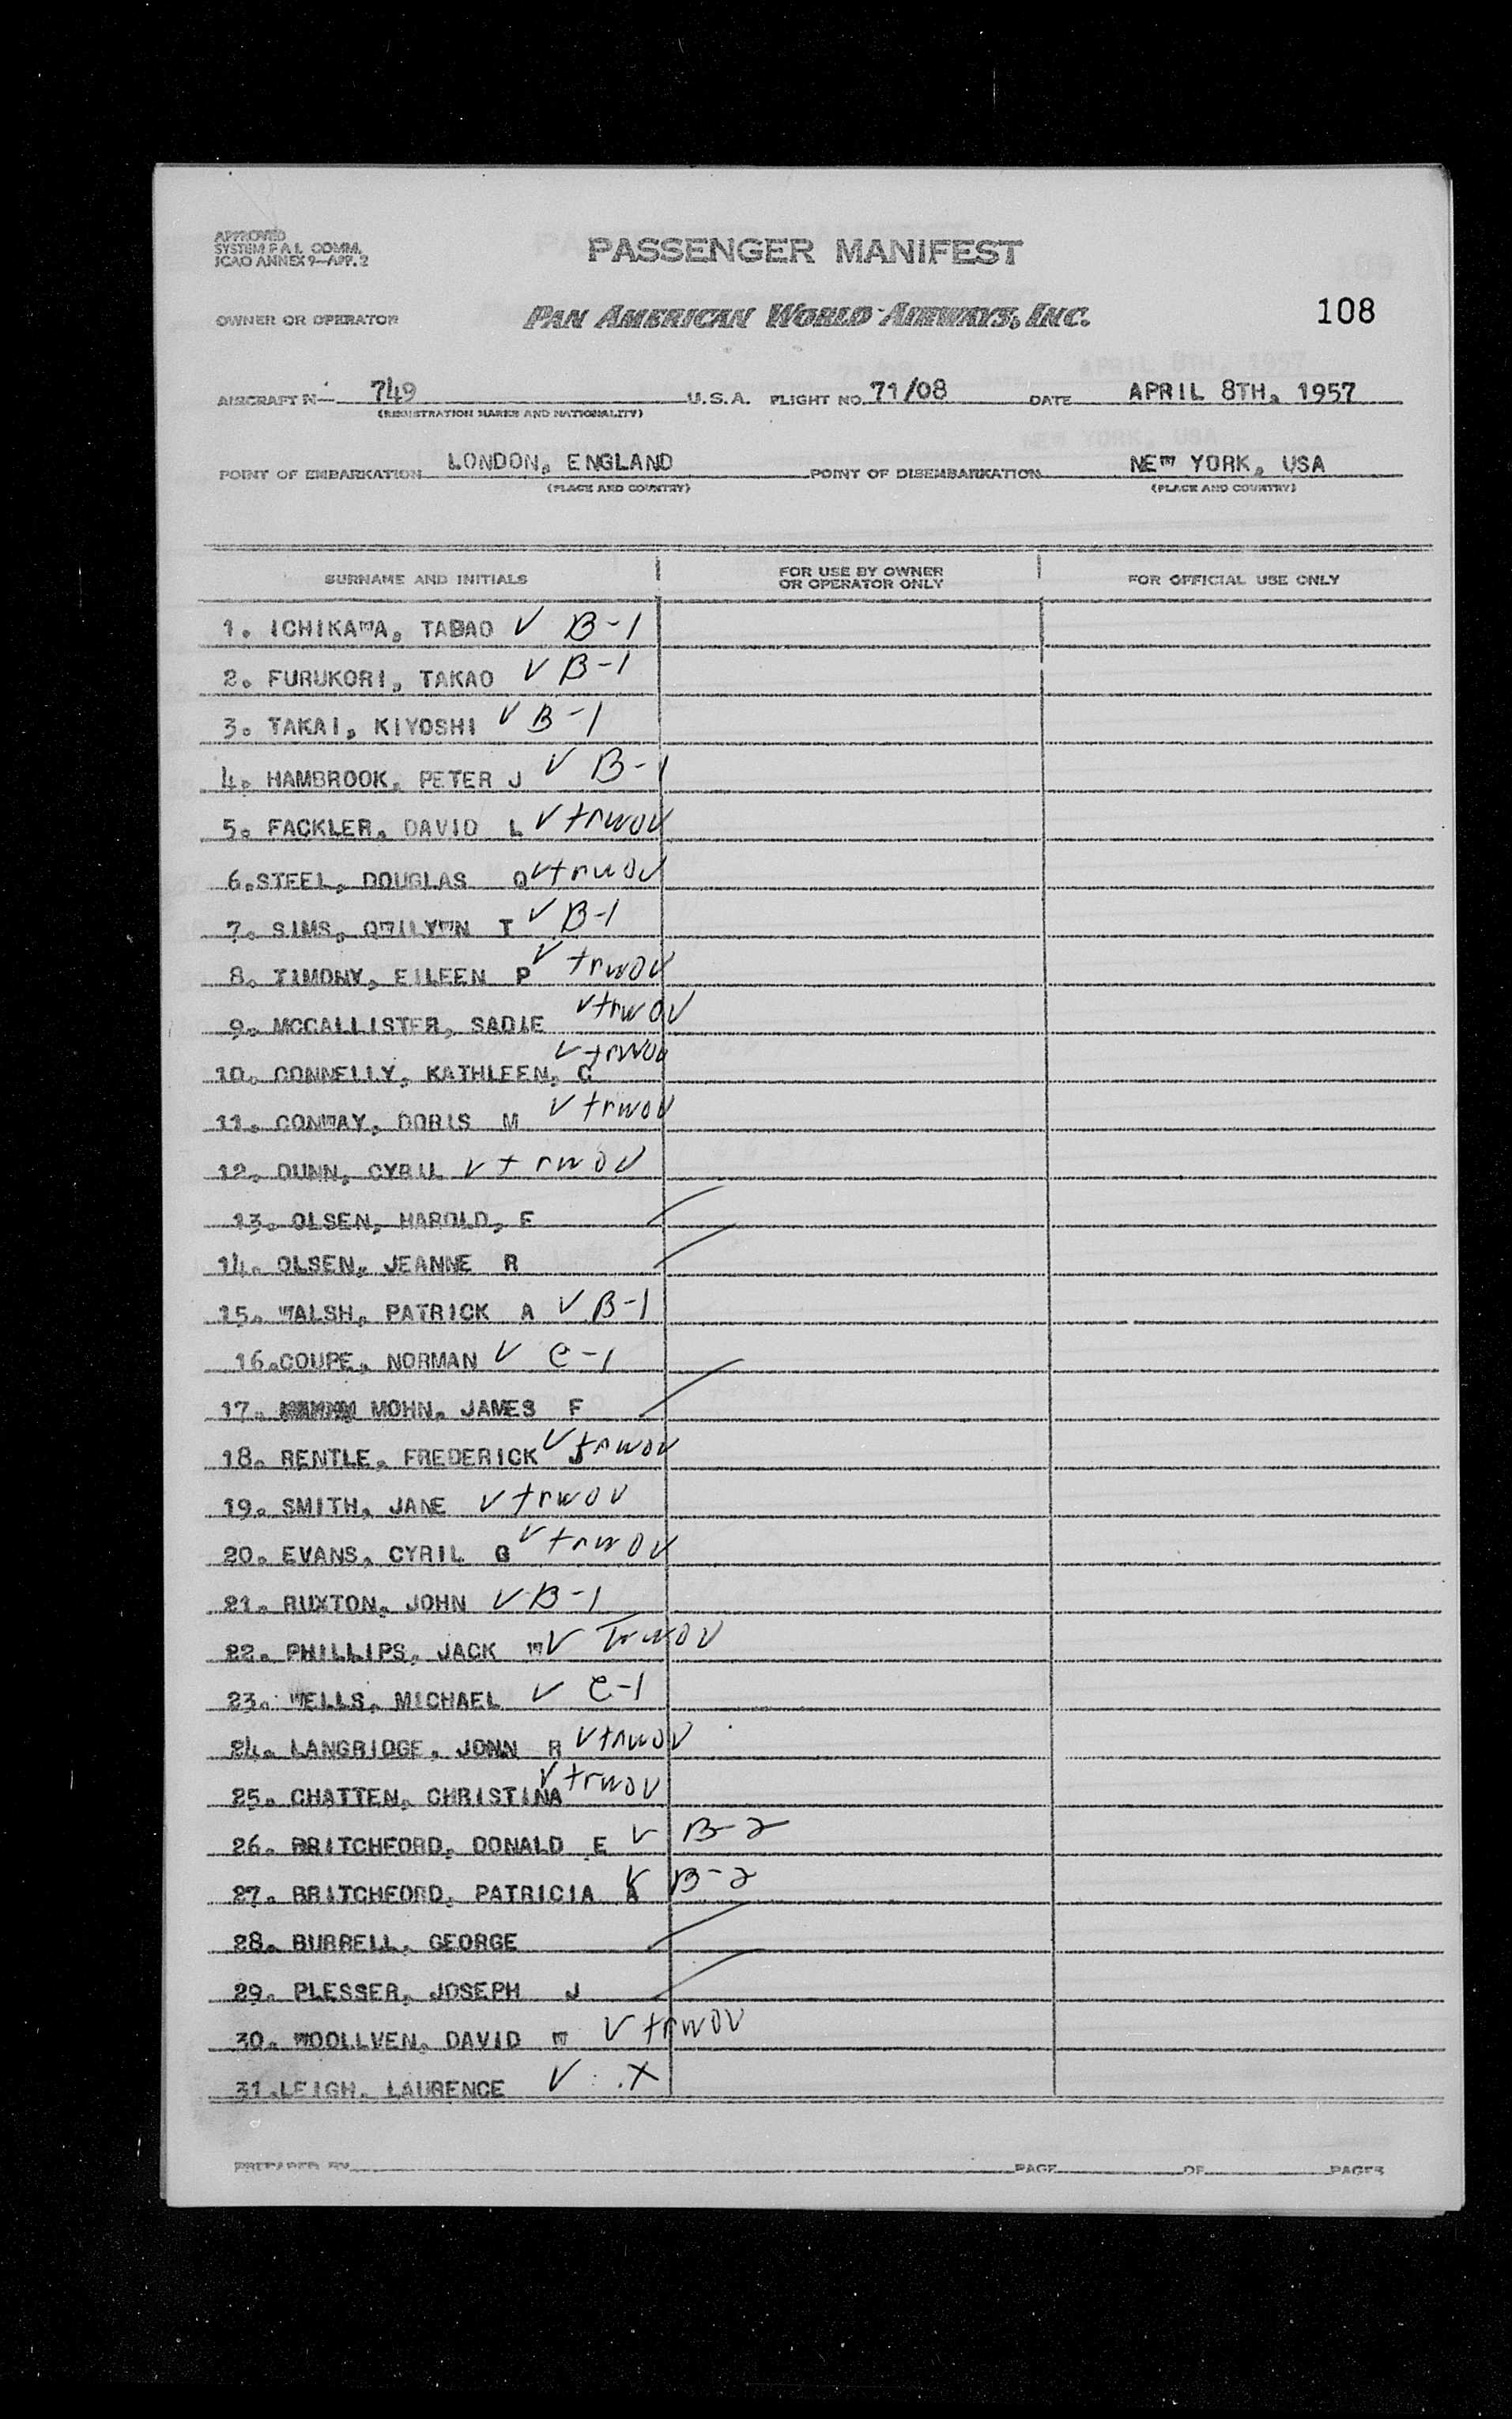 APPROVED
SYSTEM F.A.L. COMM.
ICAO ANNEX 9—APP. 2
PASSENGER MANIFEST
108
OWNER OR OPERATOR PAN AMERICAN WORLD AIRWAYS, INC.
AIRCRAFT N— 749 U.S.A. FLIGHT NO. 71/08 DATE APRIL 8TH, 1957
(REGISTRATION MARKS AND NATIONALITY)
POINT OF EMBARKATION LONDON, ENGLAND POINT OF DISEMBARKATION NEW YORK, USA
(PLACE AND COUNTRY) (PLACE AND COUNTRY)
SURNAME AND INITIALS FOR USE BY OWNER OR OPERATOR ONLY FOR OFFICIAL USE ONLY
1. ICHIKAWA, TADAO ✓ B-1
2. FURUKORI, TAKAO ✓ B-1
3. TAKAI, KIYOSHI ✓ B-1
4. HAMBROOK, PETER J ✓ B-1
5. FACKLER, DAVID L ✓ trwov
6. STEEL, DOUGLAS O ✓ trwov
7. SIMS, T ✓ B-1
8. TIMONY, EILEEN P ✓ trwov
9. MCCALLISTER, SADIE ✓ trwov
10. CONNELLY, KATHLEEN, C ✓ trwov
11. CONWAY, DORIS M ✓ trwov
12. DUNN, CYRIL ✓ trwov
13. OLSEN, HAROLD, E
14. OLSEN, JEANNE R
15. WALSH, PATRICK A ✓ B-1
16. COUPE, NORMAN ✓ C-1
17. MOHN, JAMES F
18. RENTLE, FREDERICK J ✓ trwov
19. SMITH, JANE ✓ trwov
20. EVANS, CYRIL G ✓ trwov
21. RUXTON, JOHN ✓ B-1
22. PHILLIPS, JACK W ✓ Trwov
23. WELLS, MICHAEL ✓ C-1
24. LANGRIDGE, JONN R ✓ trwov
25. CHATTEN, CHRISTINA ✓ trwov
26. BRITCHFORD, DONALD E ✓ B-2
27. BRITCHFORD, PATRICIA A ✓ B-2
28. BURRELL, GEORGE
29. PLESSER, JOSEPH J
30. WOOLLVEN, DAVID W ✓ trwov
31. LEIGH, LAURENCE ✓ X
PREPARED BY PAGE OF PAGES